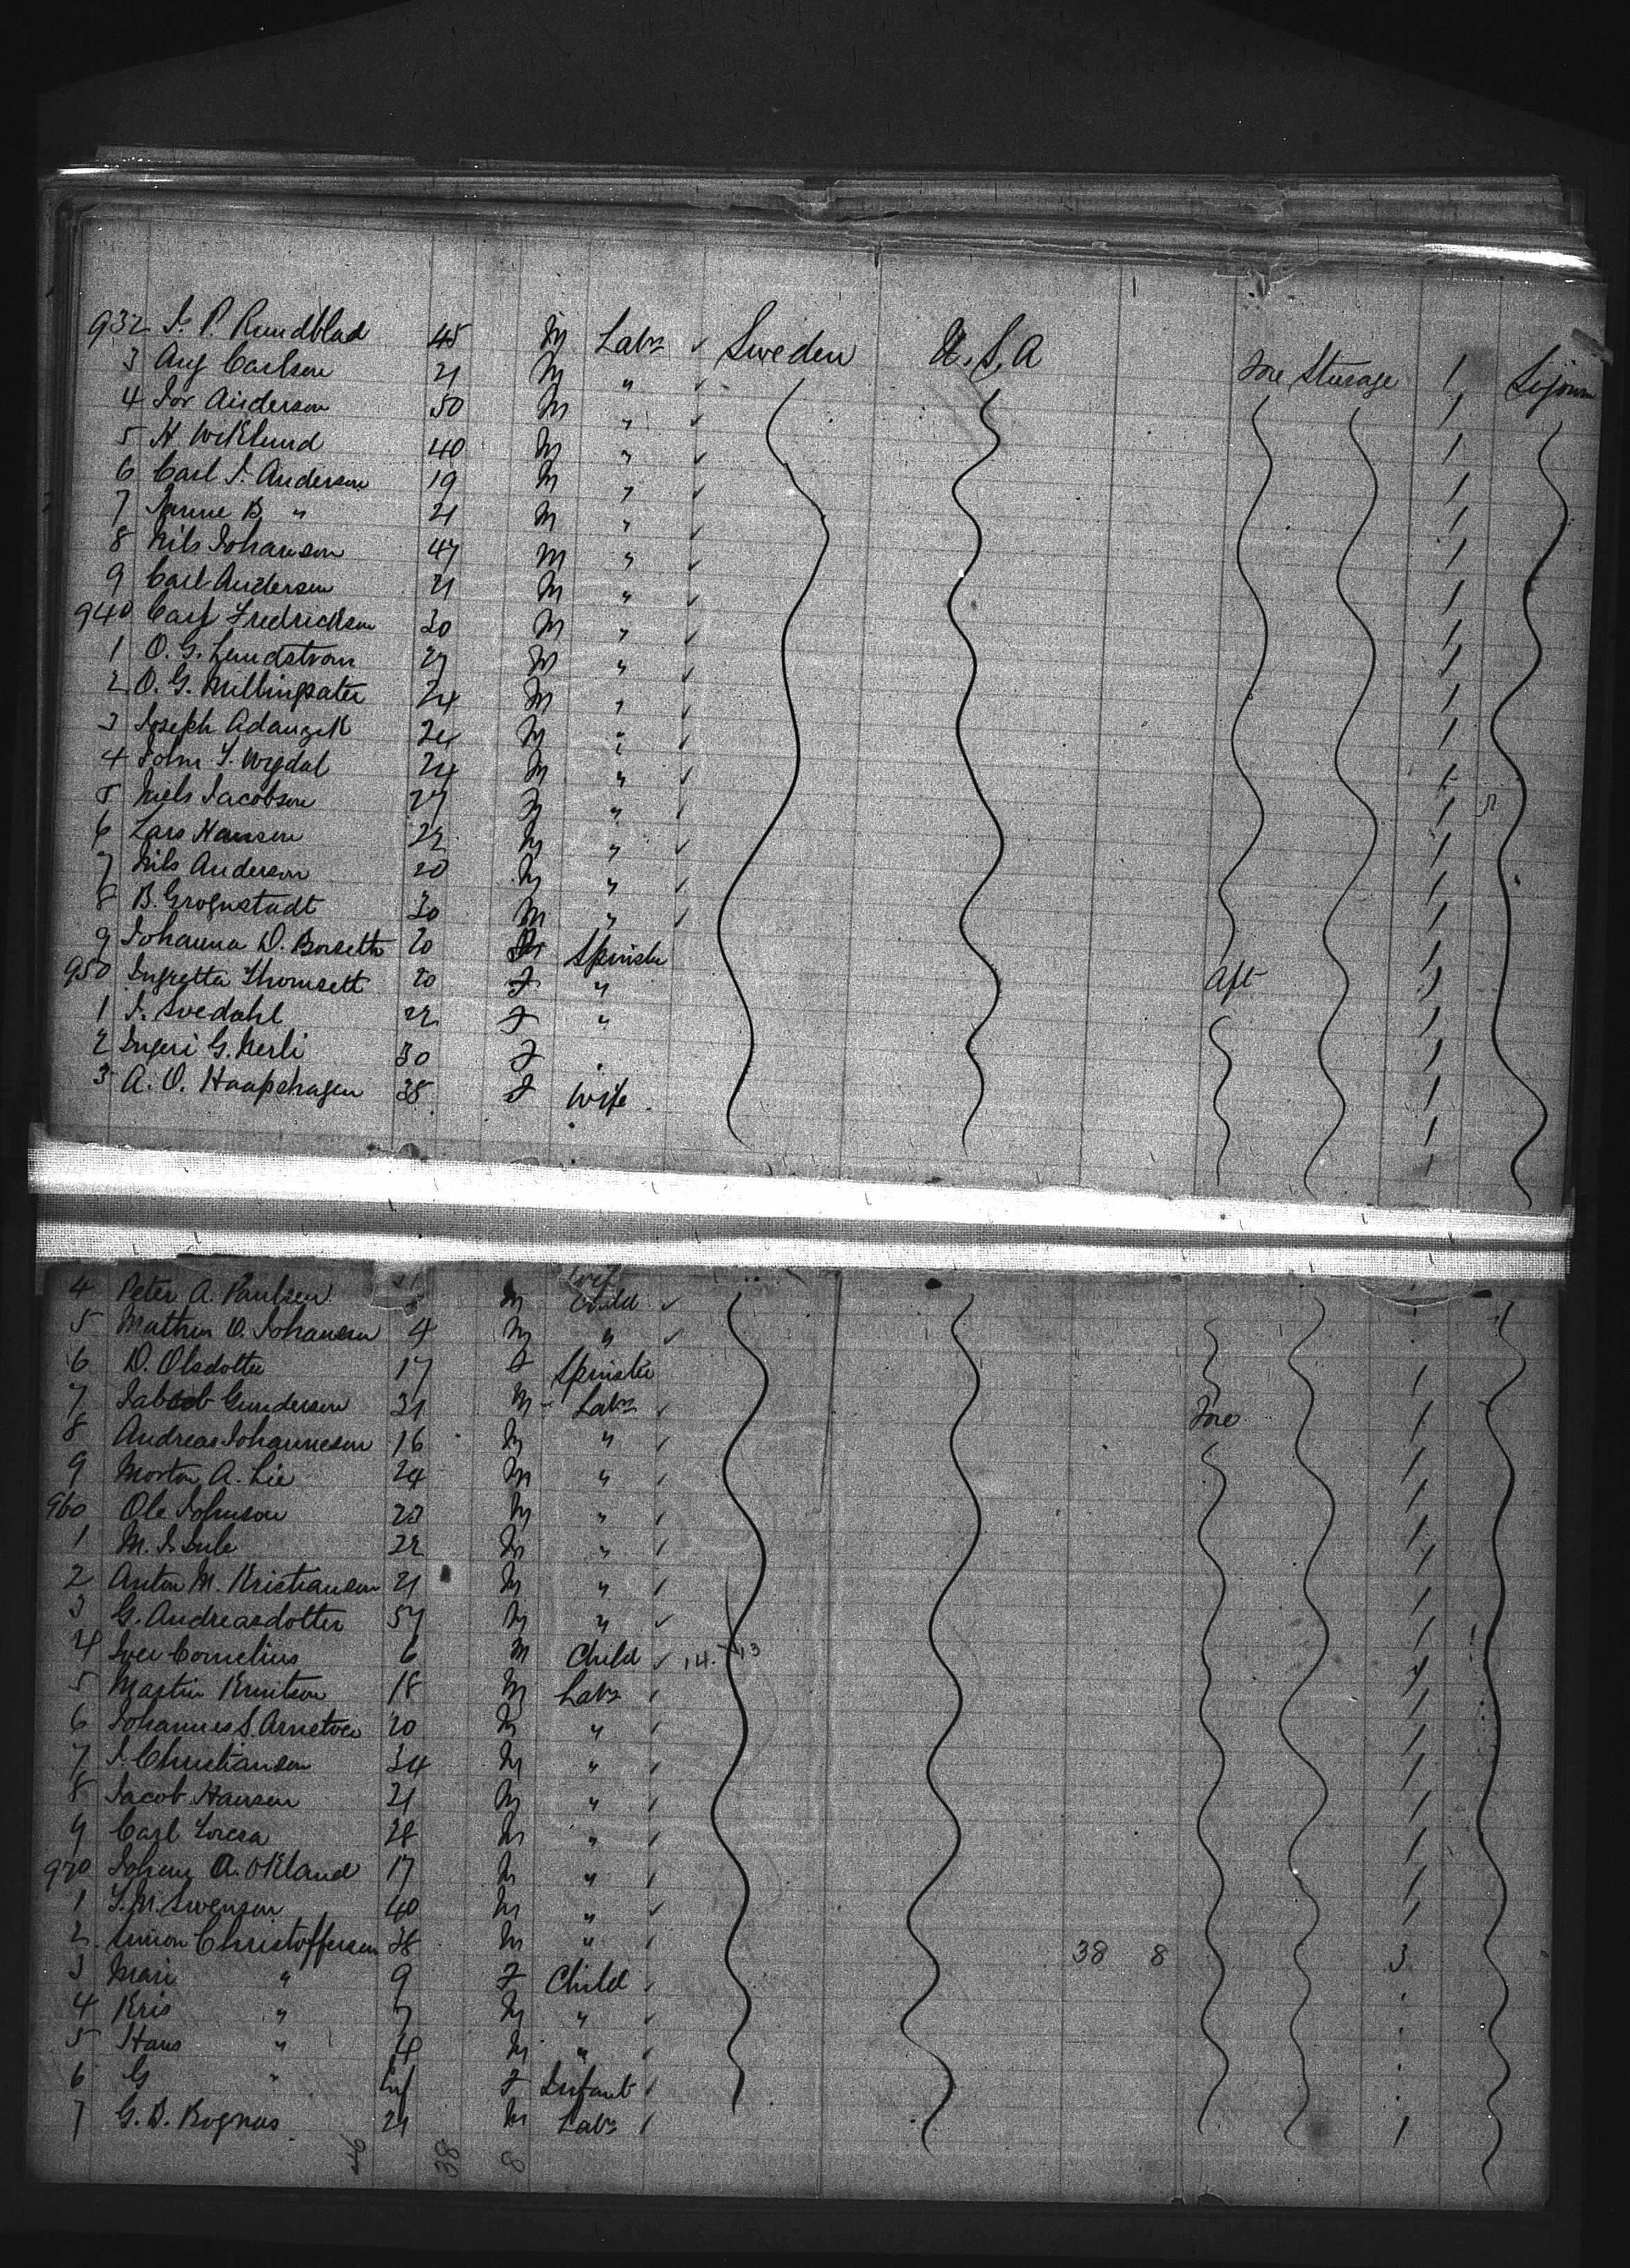 932 J. P. Rundblad 45 M Labr ✓ Sweden U.S.A Fore Steerage 1 Sejourn
3 Aug Carlson 21 M " ✓ 1
4 Jor Anderson 50 M " ✓ 1
5 H Wiklund 40 M " ✓ 1
6 Carl J. Anderson 19 M " ✓ 1
7 Janne B. " 21 M " ✓ 1
8 Nils Johanson 47 M " ✓ 1
9 Carl Anderson 21 M " ✓ 1
940 Carl Fredrickson 30 M " ✓ 1
1 O. G. Lundstrom 27 M " ✓ 1
2 O. G. Millingsater 24 M " ✓ 1
3 Joseph Adamzik 24 M " ✓ 1
4 John T. Wigdal 24 M " ✓ 1
5 Niels Jacobson 27 M " ✓ 1
6 Lars Hansen 22 M " ✓ 1
7 Nils Anderson 20 M " ✓ 1
8 B. Grognstadt 30 M " ✓ 1
9 Johanna D. Borseth 20 Spinster 1
950 Ingretta Thomsett 20 F " Aft 1
1 J. Svedahl 22 F " 1
2 Ingeri G. Nerli 30 F " 1
3 A. O. Haapshagen 38 F Wife 1
4 Peter A. Paulsen M Child ✓
5 Mathin O. Johansen 4 M " ✓
6 D. Olsdotter 17 F Spinster 1
7 Jabcob Gunderson 31 M Labr ✓ Fore 1
8 Andreas Johanneson 16 M " ✓ 1
9 Morton A. Lie 24 M " ✓ 1
960 Ole Johnson 23 M " ✓ 1
1 M. 22 M " ✓ 1
2 Anton M. Kristianson 21 M " ✓ 1
3 G. Andreasdotter 57 M " ✓ 1
4 Iver Cornelius 6 M Child ✓ 14. 13 1
5 Martin Knutson 18 M Labr ✓ 1
6 Johannes S. 20 M " ✓ 1
7 J. Christianson 34 M " ✓ 1
8 Jacob Hansen 21 M " ✓ 1
9 Carl 28 M " ✓ 1
970 Johan A. Okland 17 M " ✓ 1
1 T. M. Swenson 40 M " ✓ 1
2 Simon Christoffersen 38 M " ✓ 38 8 3
3 Mari " 9 F Child ✓
4 Kris " 7 M " ✓
5 Hans " 4 M " ✓
6 G " Inf F Infant ✓
7 G. B. Rognus 21 M Labr ✓ 1
46 38 8